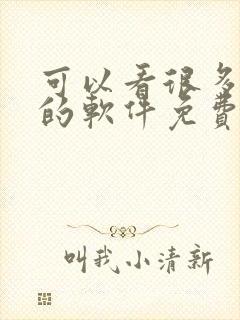 可以看很多
的軟件免費
叫我小清新